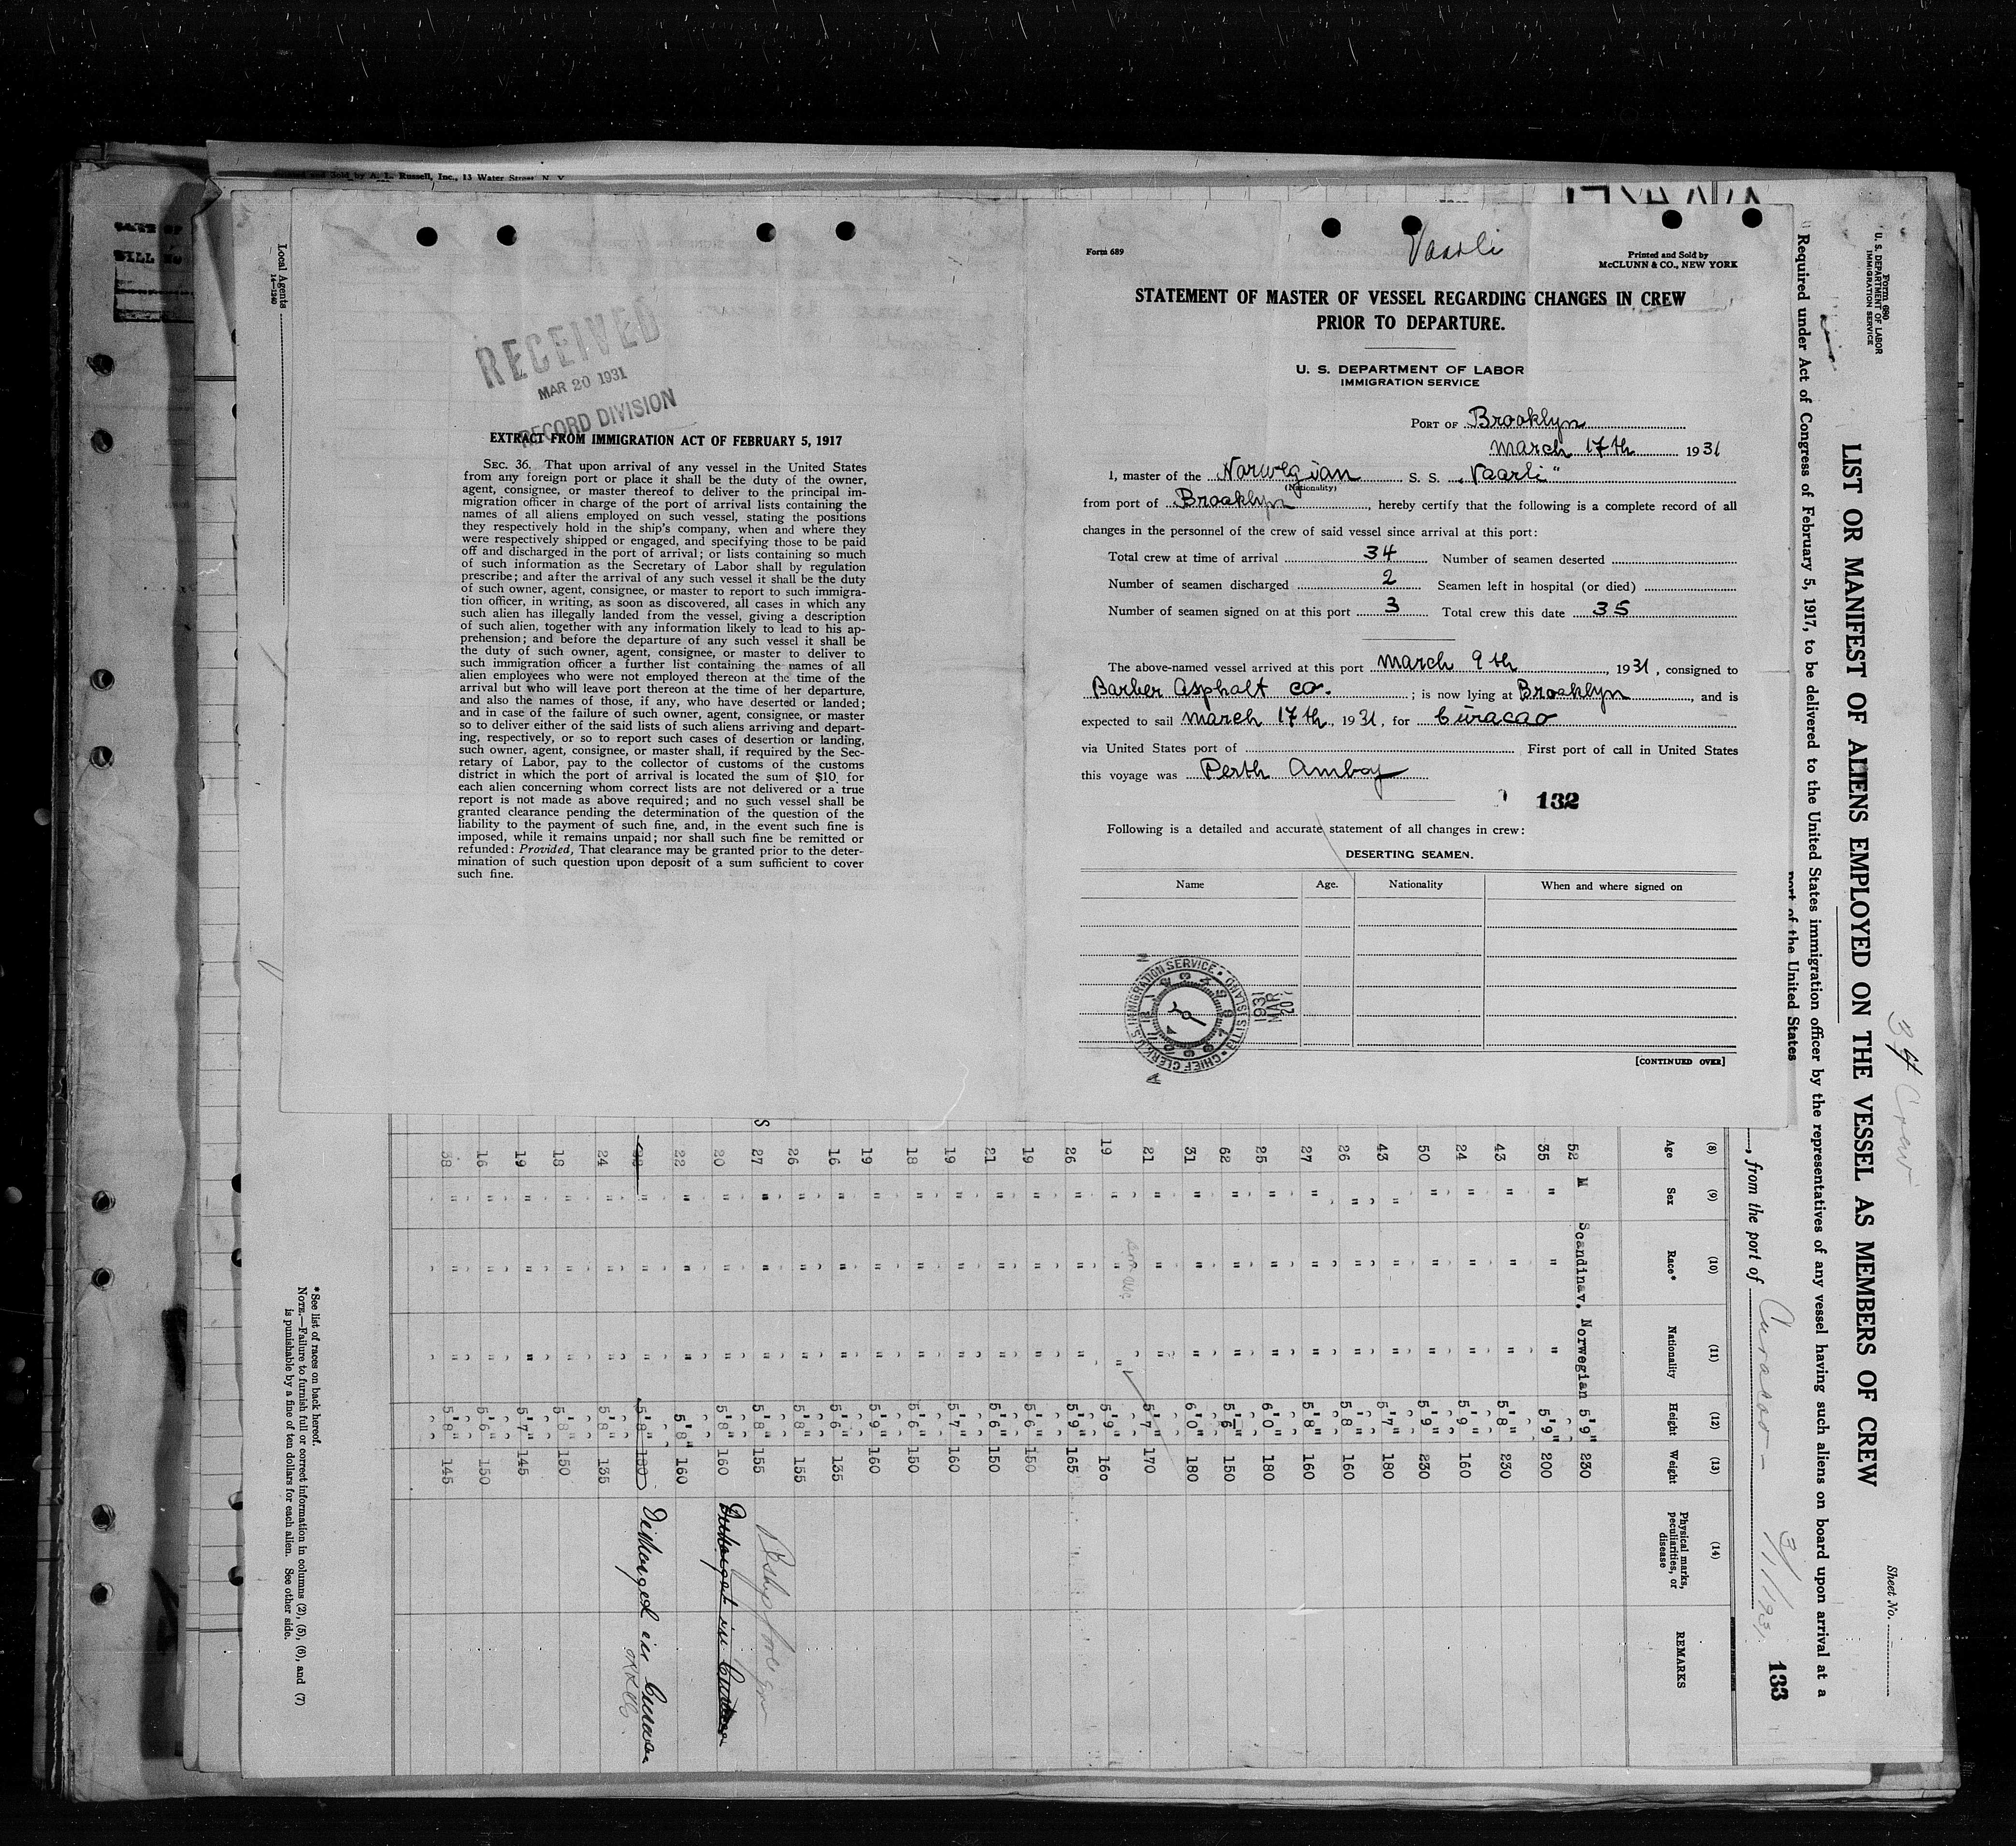 Printed and Sold by A. L. Russell, Inc., 13 Water Street, N. Y.
Local Agents
14—1240
RECEIVED
MAR 20 1931
RECORD DIVISION
EXTRACT FROM IMMIGRATION ACT OF FEBRUARY 5, 1917
SEC. 36. That upon arrival of any vessel in the United States
from any foreign port or place it shall be the duty of the owner,
agent, consignee, or master thereof to deliver to the principal im-
migration officer in charge of the port of arrival lists containing the
names of all aliens employed on such vessel, stating the positions
they respectively hold in the ship's company, when and where they
were respectively shipped or engaged, and specifying those to be paid
off and discharged in the port of arrival; or lists containing so much
of such information as the Secretary of Labor shall by regulation
prescribe; and after the arrival of any such vessel it shall be the duty
of such owner, agent, consignee, or master to report to such immigra-
tion officer, in writing, as soon as discovered, all cases in which any
such alien has illegally landed from the vessel, giving a description
of such alien, together with any information likely to lead to his ap-
prehension; and before the departure of any such vessel it shall be
the duty of such owner, agent, consignee, or master to deliver to
such immigration officer a further list containing the names of all
alien employees who were not employed thereon at the time of the
arrival but who will leave port thereon at the time of her departure,
and also the names of those, if any, who have deserted or landed;
and in case of the failure of such owner, agent, consignee, or master
so to deliver either of the said lists of such aliens arriving and depart-
ing, respectively, or so to report such cases of desertion or landing,
such owner, agent, consignee, or master shall, if required by the Sec-
retary of Labor, pay to the collector of customs of the customs
district in which the port of arrival is located the sum of $10 for
each alien concerning whom correct lists are not delivered or a true
report is not made as above required; and no such vessel shall be
granted clearance pending the determination of the question of the
liability to the payment of such fine, and, in the event such fine is
imposed, while it remains unpaid; nor shall such fine be remitted or
refunded: Provided, That clearance may be granted prior to the deter-
mination of such question upon deposit of a sum sufficient to cover
such fine.
Form 689
Vaarli
Printed and Sold by
McCLUNN & CO., NEW YORK
STATEMENT OF MASTER OF VESSEL REGARDING CHANGES IN CREW
PRIOR TO DEPARTURE.
U. S. DEPARTMENT OF LABOR
IMMIGRATION SERVICE
PORT OF Brooklyn
March 17th 1931
I, master of the Norwegian S. S. „Vaarli"
(Nationality)
from port of Brooklyn, hereby certify that the following is a complete record of all
changes in the personnel of the crew of said vessel since arrival at this port:
Total crew at time of arrival 34 Number of seamen deserted
Number of seamen discharged 2 Seamen left in hospital (or died)
Number of seamen signed on at this port 3 Total crew this date 35
The above-named vessel arrived at this port March 9th, 1931, consigned to
Barber Asphalt Co.; is now lying at Brooklyn, and is
expected to sail March 17th, 1931, for Curacao
via United States port of First port of call in United States
this voyage was Perth Amboy
132
Following is a detailed and accurate statement of all changes in crew:
DESERTING SEAMEN.
Name Age. Nationality When and where signed on
CHIEF CLERK U.S. IMMIGRATION SERVICE • ELLIS ISLAND
MAR 20 1931
[CONTINUED OVER]
Form 680
U. S. DEPARTMENT OF LABOR
IMMIGRATION SERVICE
Sheet No.
34 Crew
LIST OR MANIFEST OF ALIENS EMPLOYED ON THE VESSEL AS MEMBERS OF CREW
Required under Act of Congress of February 5, 1917, to be delivered to the United States immigration officer by the representatives of any vessel having such aliens on board upon arrival at a
port of the United States
, from the port of Curacao - 3/1/1931
133
(8) (9) (10) (11) (12) (13) (14)
Age Sex Race* Nationality Height Weight Physical marks, peculiarities, or disease REMARKS
52 M Scandinav. Norwegian 5'9" 230
35 " " " 5'9" 200
43 " " " 5'8" 230
24 " " " 5'9" 160
50 " " " 5'9" 230
43 " " " 5'7" 180
26 " " " 5'8" 160
27 " " " 5'8" 160
25 " " " 6'0" 180
62 " " " 5'6" 150
31 " " " 6'0" 180
21 " " " 5'7" 170
19 " " " 5'9" 160
26 " " " 5'9" 165
19 " " " 5'6" 150
21 " " " 5'6" 150
19 " " " 5'7" 160
18 " " " 5'6" 150
19 " " " 5'9" 160
16 " " " 5'6" 135
26 " " " 5'8" 155
27 " " " 5'8" 155
20 " " " 5'8" 160 Discharged in Curacao
22 " " " 5'8" 160
" " " 5'8" 180 Discharged in Curacao
24 " " " 5'8" 135
18 " " " 5'8" 150
19 " " " 5'7" 145
16 " " " 5'6" 150
38 " " " 5'8" 145
*See list of races on back hereof.
NOTE.—Failure to furnish full or correct information in columns (2), (5), (6), and (7)
is punishable by a fine of ten dollars for each alien. See other side.